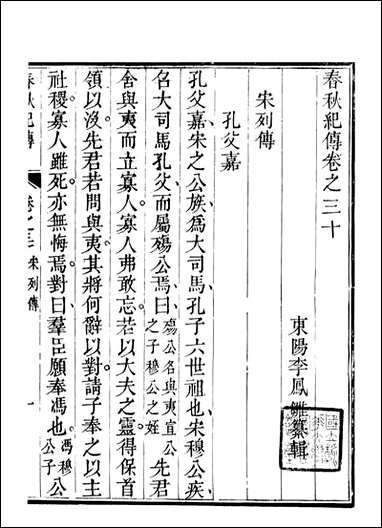 春秋紀傳卷之三十
東陽李鳳雛纂輯
宋列傳
孔父嘉
孔父嘉宋之公族爲大司馬孔子六世祖也宋穆公疾
名大司馬孔父而屬殤公焉曰殤公名與夷宣公之子穆公之姪先君
舍與夷而立寡人寡人弗敢忘若以大夫之靈得保首
領以沒先君若問與夷其將何辭以對請子奉之以主
社稷寡人雖死亦無悔焉對曰羣臣願奉馮也馮穆公公子公
春秋紀傳
卷之三十 宋列傳
一